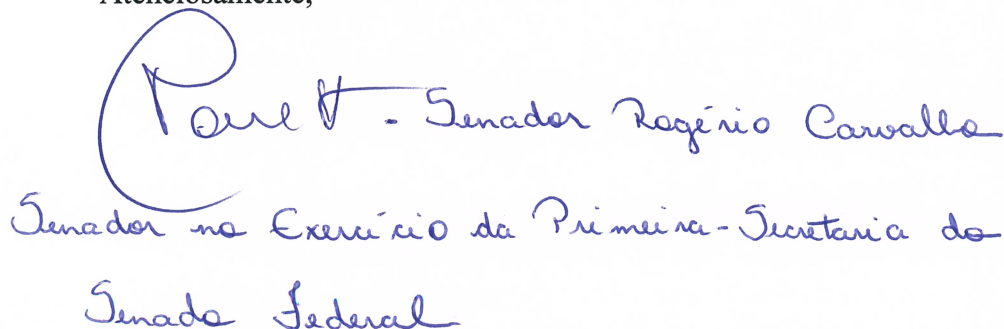 Atenciosamente,
- Senador Rogério Carvalho
Senador no Exercício da Primeira-Secretaria do
Senado Federal